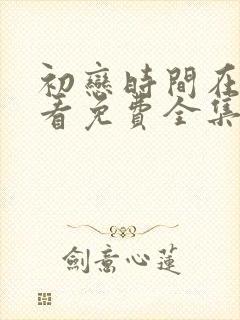 初戀時間在
看免費全集
劍意心蓮